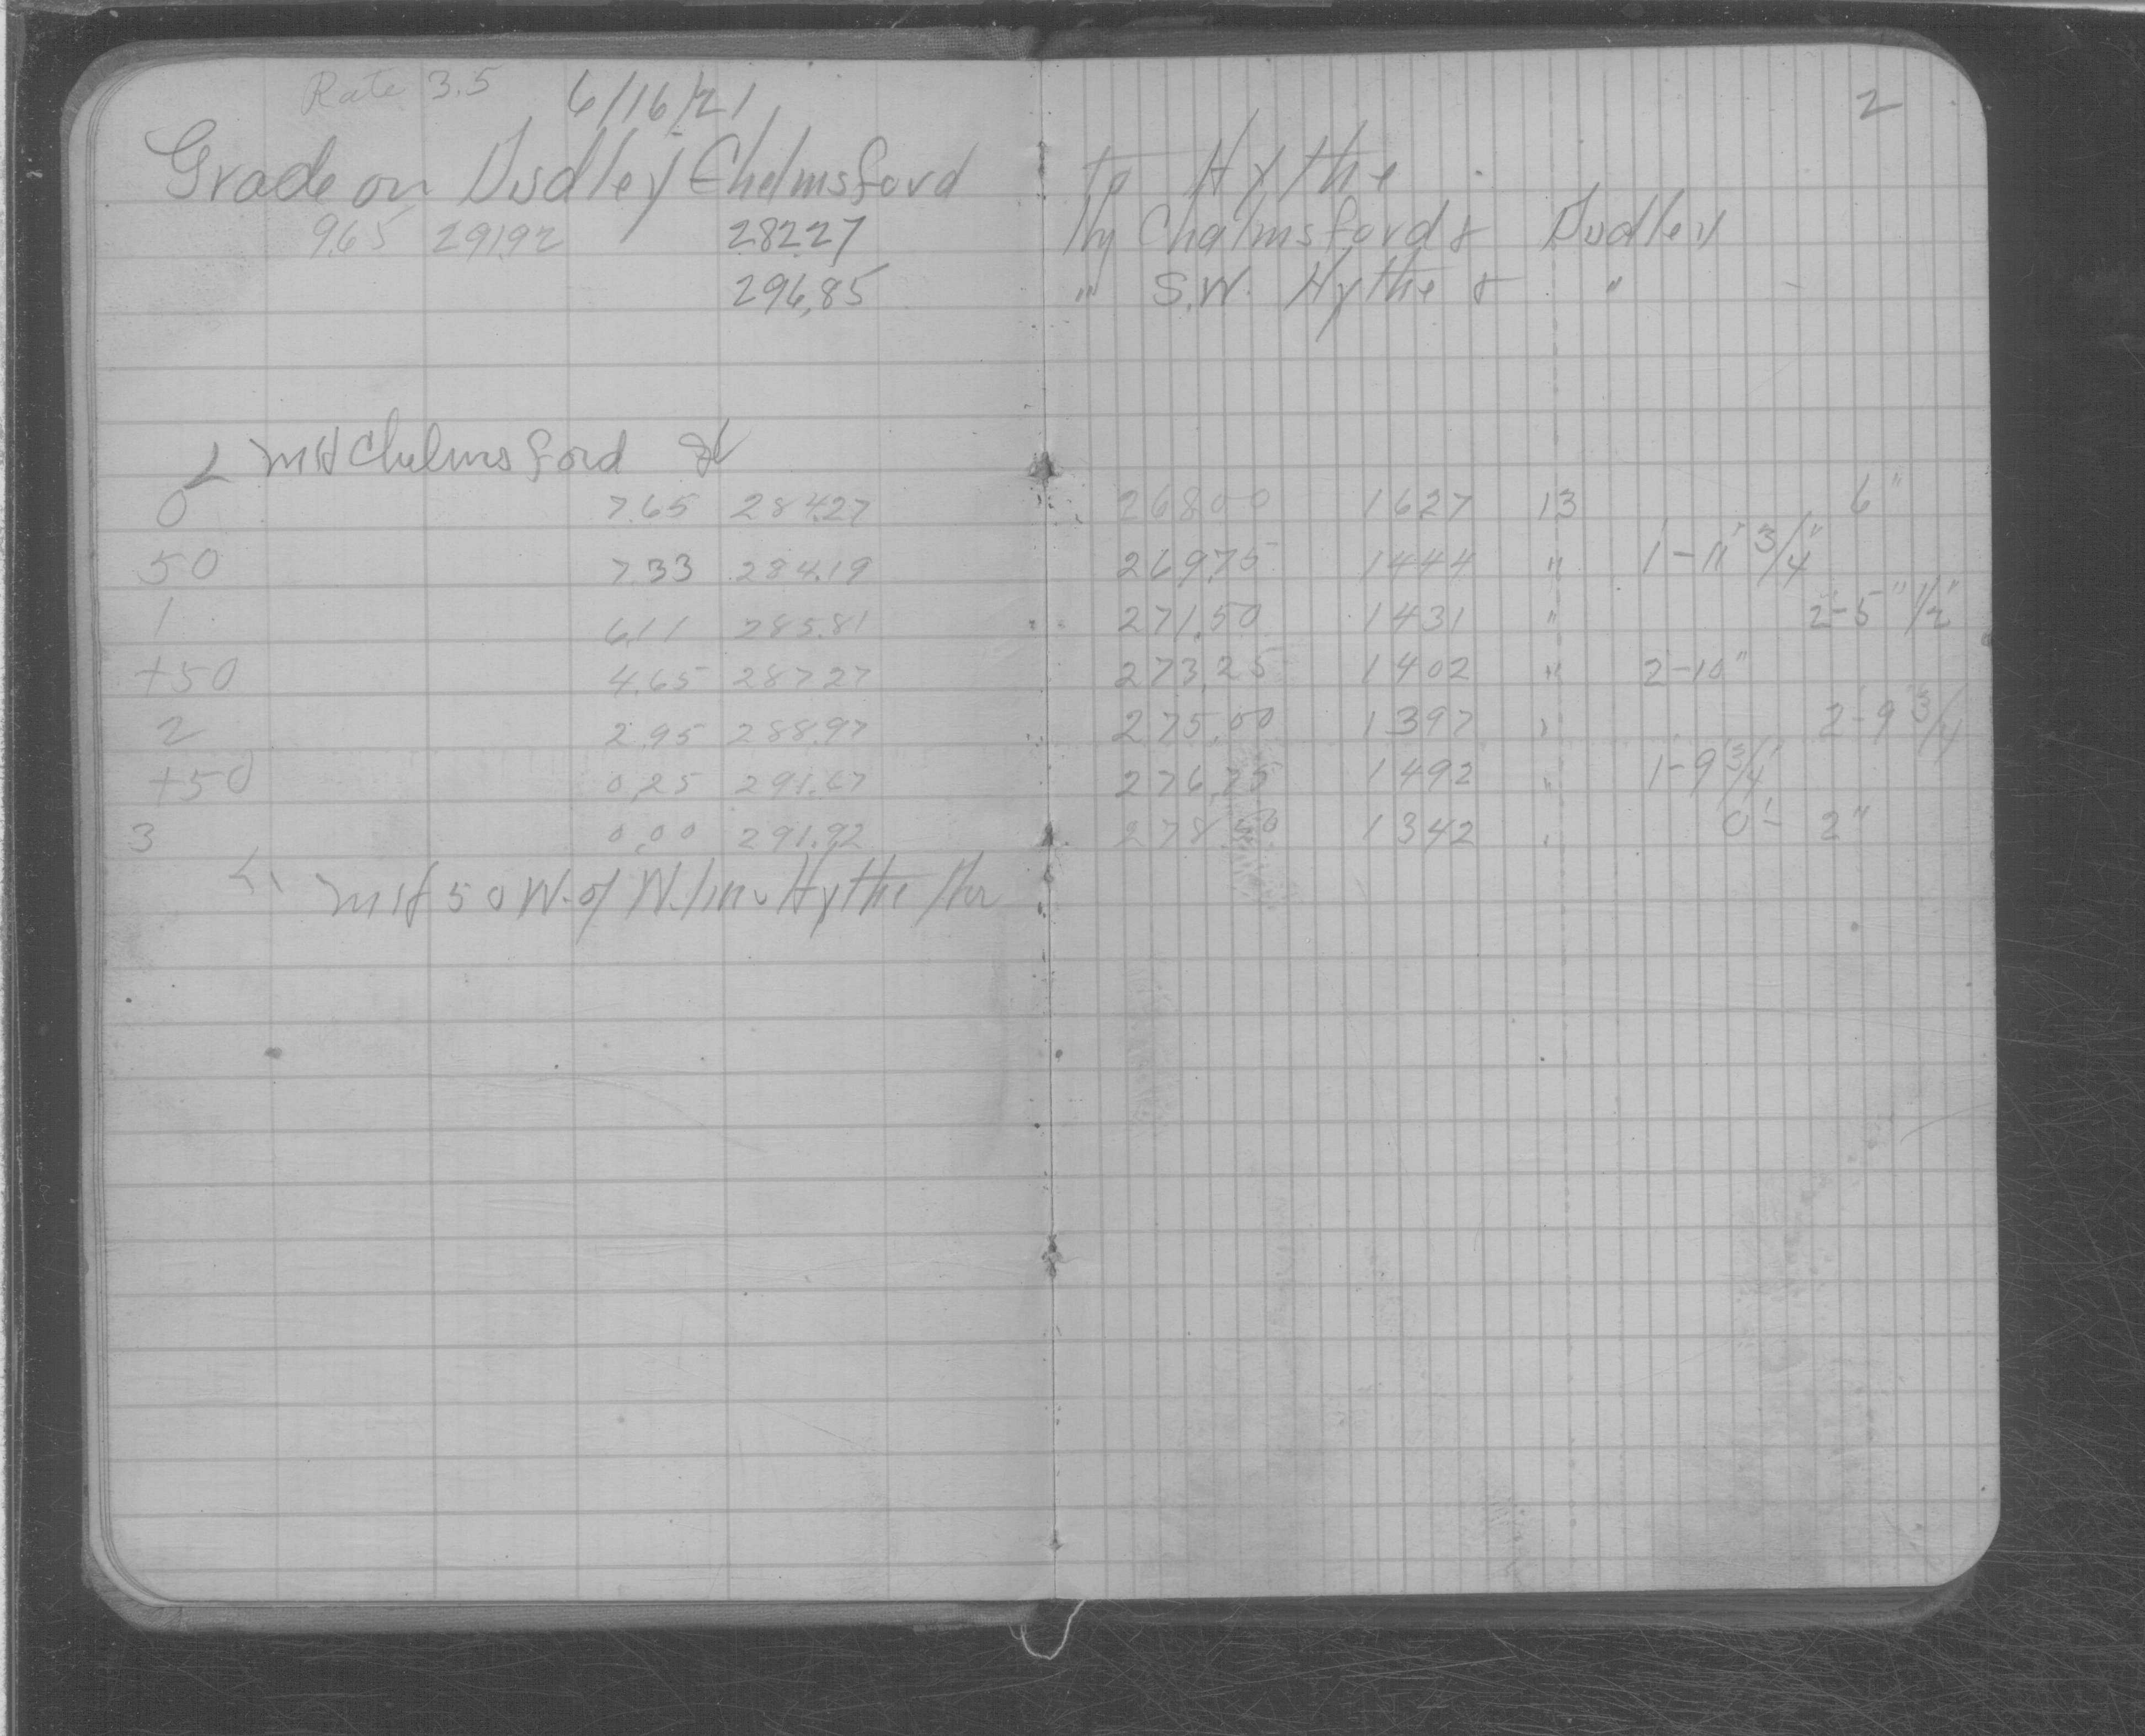 Rate 3.5 6/16/21 2
Grade on Dudley Chelmsford to Hythe
9.65 291.92 282.27 Hy Chalmsford & Dudley
296.85 " S.W. Hythe & "
MH Chelmsford St
0 7.65 284.27 268.00 1627 13 6"
50 7.33 284.19 269.75 1444 " 1-11" 3/4"
1 6.11 285.81 271.50 1431 " 2-5" 1/2"
+50 4.65 287.27 273.25 1402 " 2-10"
2 2.95 288.97 275.00 1397 " 2-9 3/4
+50 0.25 291.67 276.75 1492 " 1-9 3/4"
3 0.00 291.92 278.50 1342 " 0'- 2"
MH 50 W. of W. line Hythe